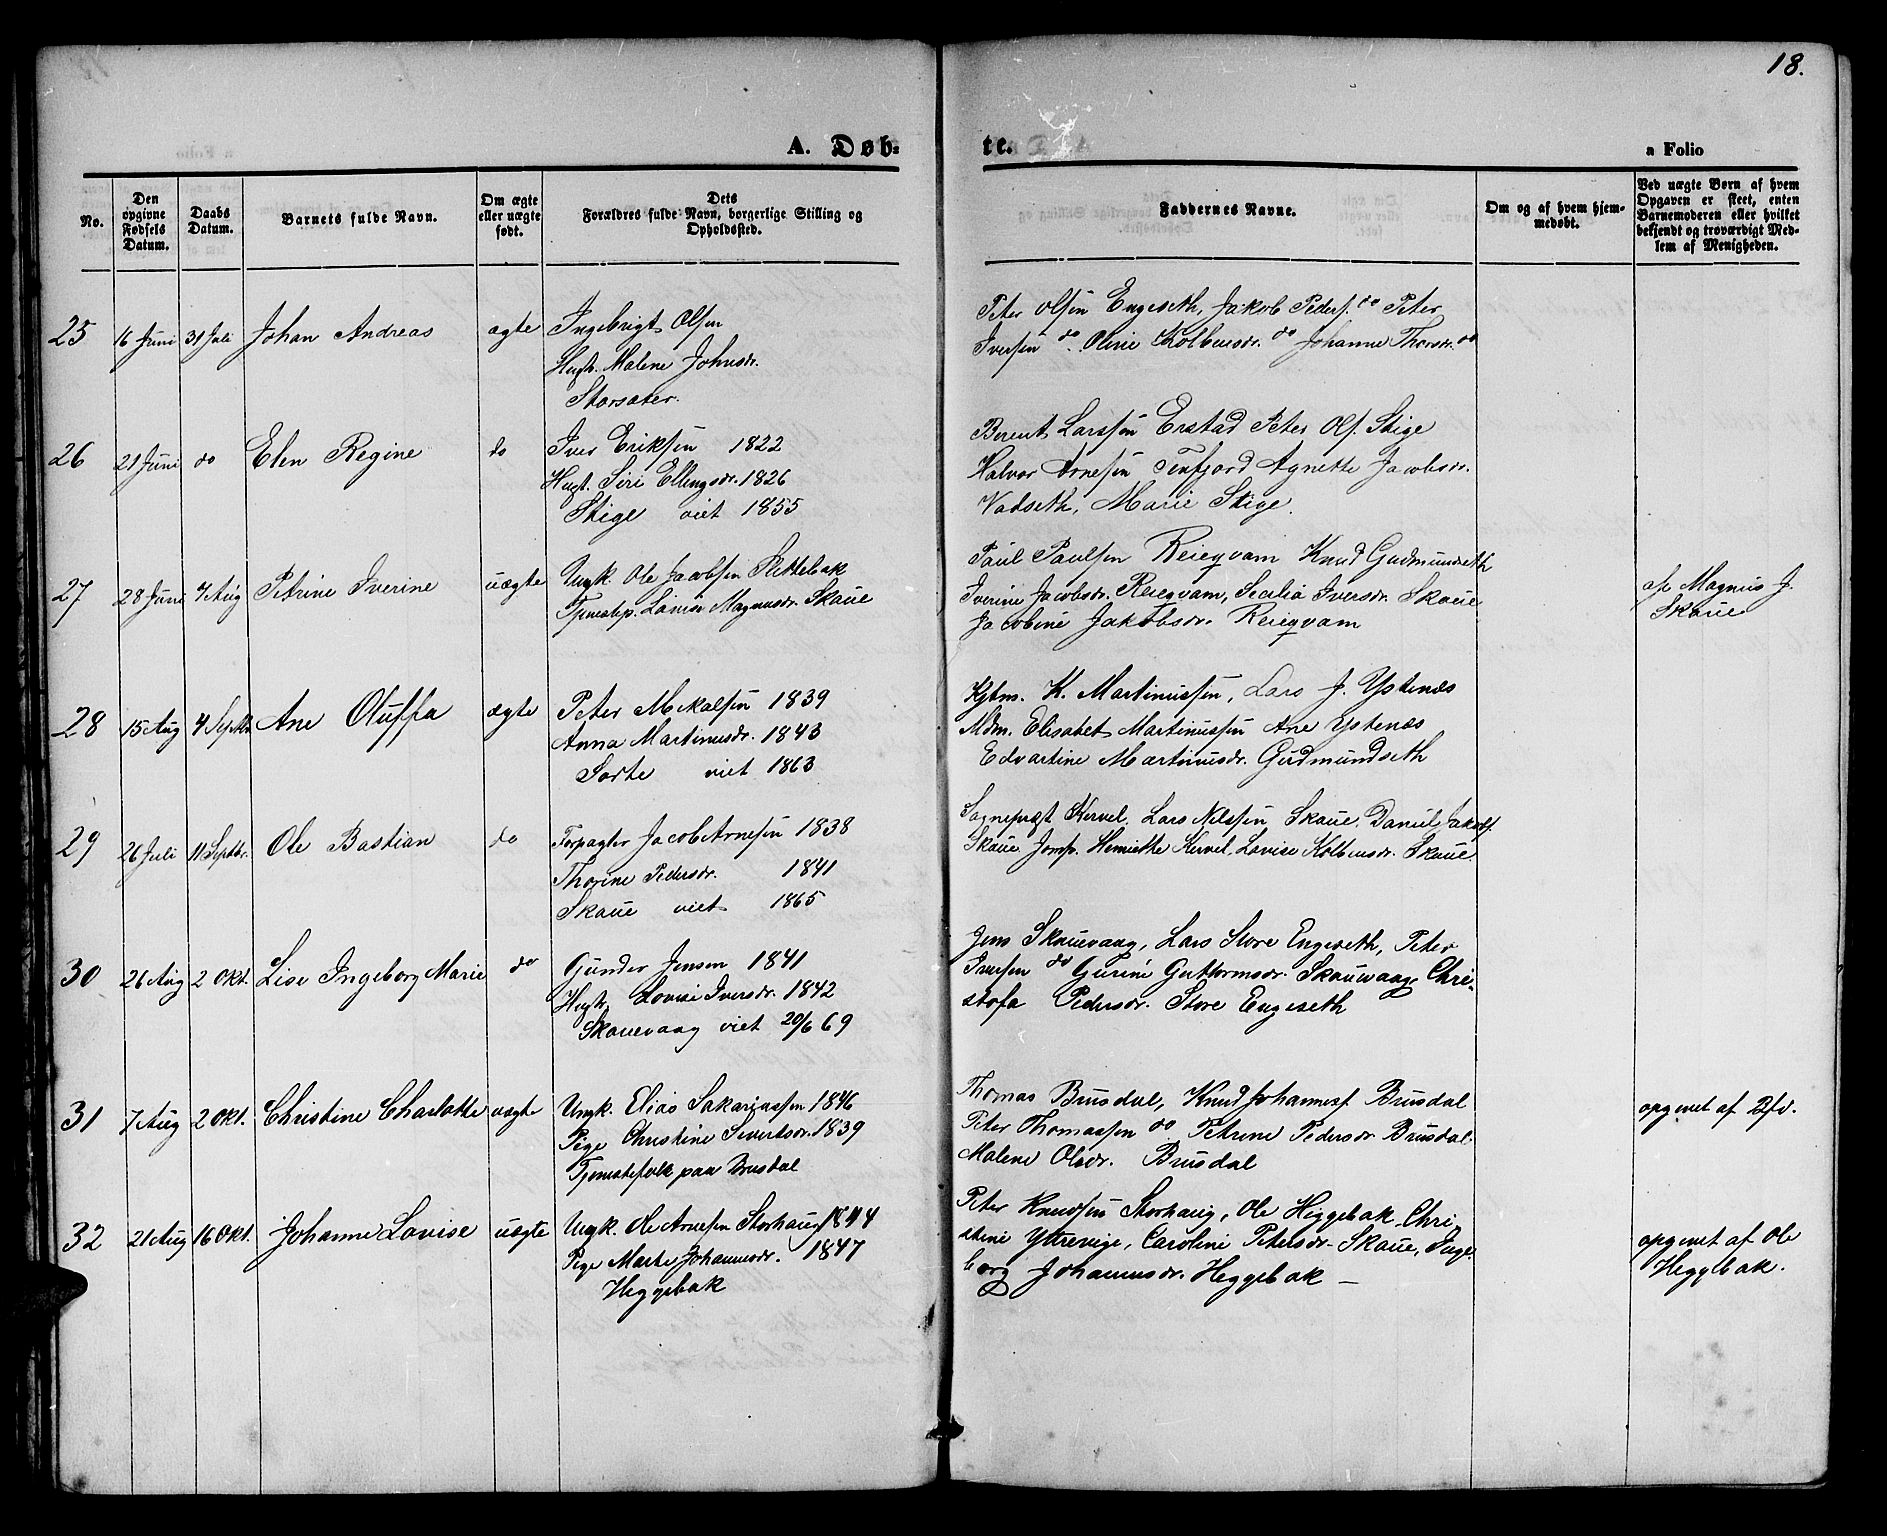 18.
A. Døb-
te.
a Folio
No.
Den
opgivne
Fødsels
Datum.
Daabs
Datum.
Barnets fulde Navn.
Om ægte
eller uægte
født.
Dets
Forældres fulde Navn, borgerlige Stilling og
Opholdssted.
Faddernes Navne.
Om og af hvem hjem-
medøbt.
Ved uægte Børn af hvem
Opgaven er skeet, enten
Barnemoderen eller hvilket
bekjendt og troværdigt Med-
lem af Menigheden.
25 16 Juni 31 Juli Johan Andreas ægte Ingebrigt Olsen
Hust. Malene Johnsdr.
Storsæter.
Peter Olsen Engeseth, Jakob Peders. do Peter
Iversen do. Oline Kolbensdr. do Johanne Thorsdr. do
26 21 Juni do Elen Regine do Iver Eriksen 1822
Hust. Siri Ellingsdr. 1826
Stige viet 1855
Berent Larssen Erstad Peter Ols. Stige
Halvor Arnesen Tenfjord Agnette Jacobsdr.
Vadseth, Marie Stige.
27 28 Juni 7 Aug Petrine Iverine uægte Ungk. Ole Jacobsen Slettebak
Tjenestep. Lovise Magnusdr. Skaue
Paul Paulsen Reiegvam Knud Gudmundseth
Iverine Jacobsdr. Reieqvam, Secilia Iversdr. Skaue
Jacobine Jakobsdr. Reieqvam
af Magnus J.
Skaue
28 15 Aug 4 Septbr Ane Oluffa ægte Peter Mekalsen 1839
Anna Martinusdr. 1843
Sorte viet 1863
K. Martinussen, Lars J. Ystenæs
Mdm. Elisabet Martinussen Ane Ystenæs
Edvartine Martinusdr. Gudmundseth
29 26 Juli 11 Septbr. Ole Bastian do Forpagter Jacob Arnesen 1838
Thorine Pedersdr. 1841
Skaue viet 1865
Sognepræst Kervel, Lars Nilssen Skaue. Daniel Jakobs.
Skaue Jomf. Henriette Kervel, Lovise Kolbensdr. Skaue.
30 26 Aug 2 Okt. Lise Ingeborg Marie do Gunder Jensen 1841
Hust. Lovise Iversdr. 1842
Skouevaag viet 20/6 69
Jens Skouevaag, Lars Store Engeseth, Peter
Iversen do Gurine Guttormsdr. Skouevaag, Chri-
stofa Pedersdr. Store Engeseth
31 7 Aug 2 Okt. Christine Charlotte uægte Ungk. Elias Sakariassen 1846
Pige Christine Sivertsdr. 1839
Tjenestefolk paa Brusdal
Thomas Brusdal, Knud Johannesf. Brusdal
Peter Thomassen do Petrine Pedersdr Brusdal.
Malene Olsdr. Brusdal
opgivet af Bfd.
32 21 Aug 16 Okt. Johanne Lovise uægte Ungk. Ole Arnesen Storhaug 1844
Pige Marte Johannesdr. 1847
Heggebak
Peter Knudsen Storhaug, Ole Heggebak, Chri
stine Yttrevige, Caroline Petersdr. Skaue, Inge-
borg Johannesdr. Heggebak —
opgivet af Ole
Heggebak.